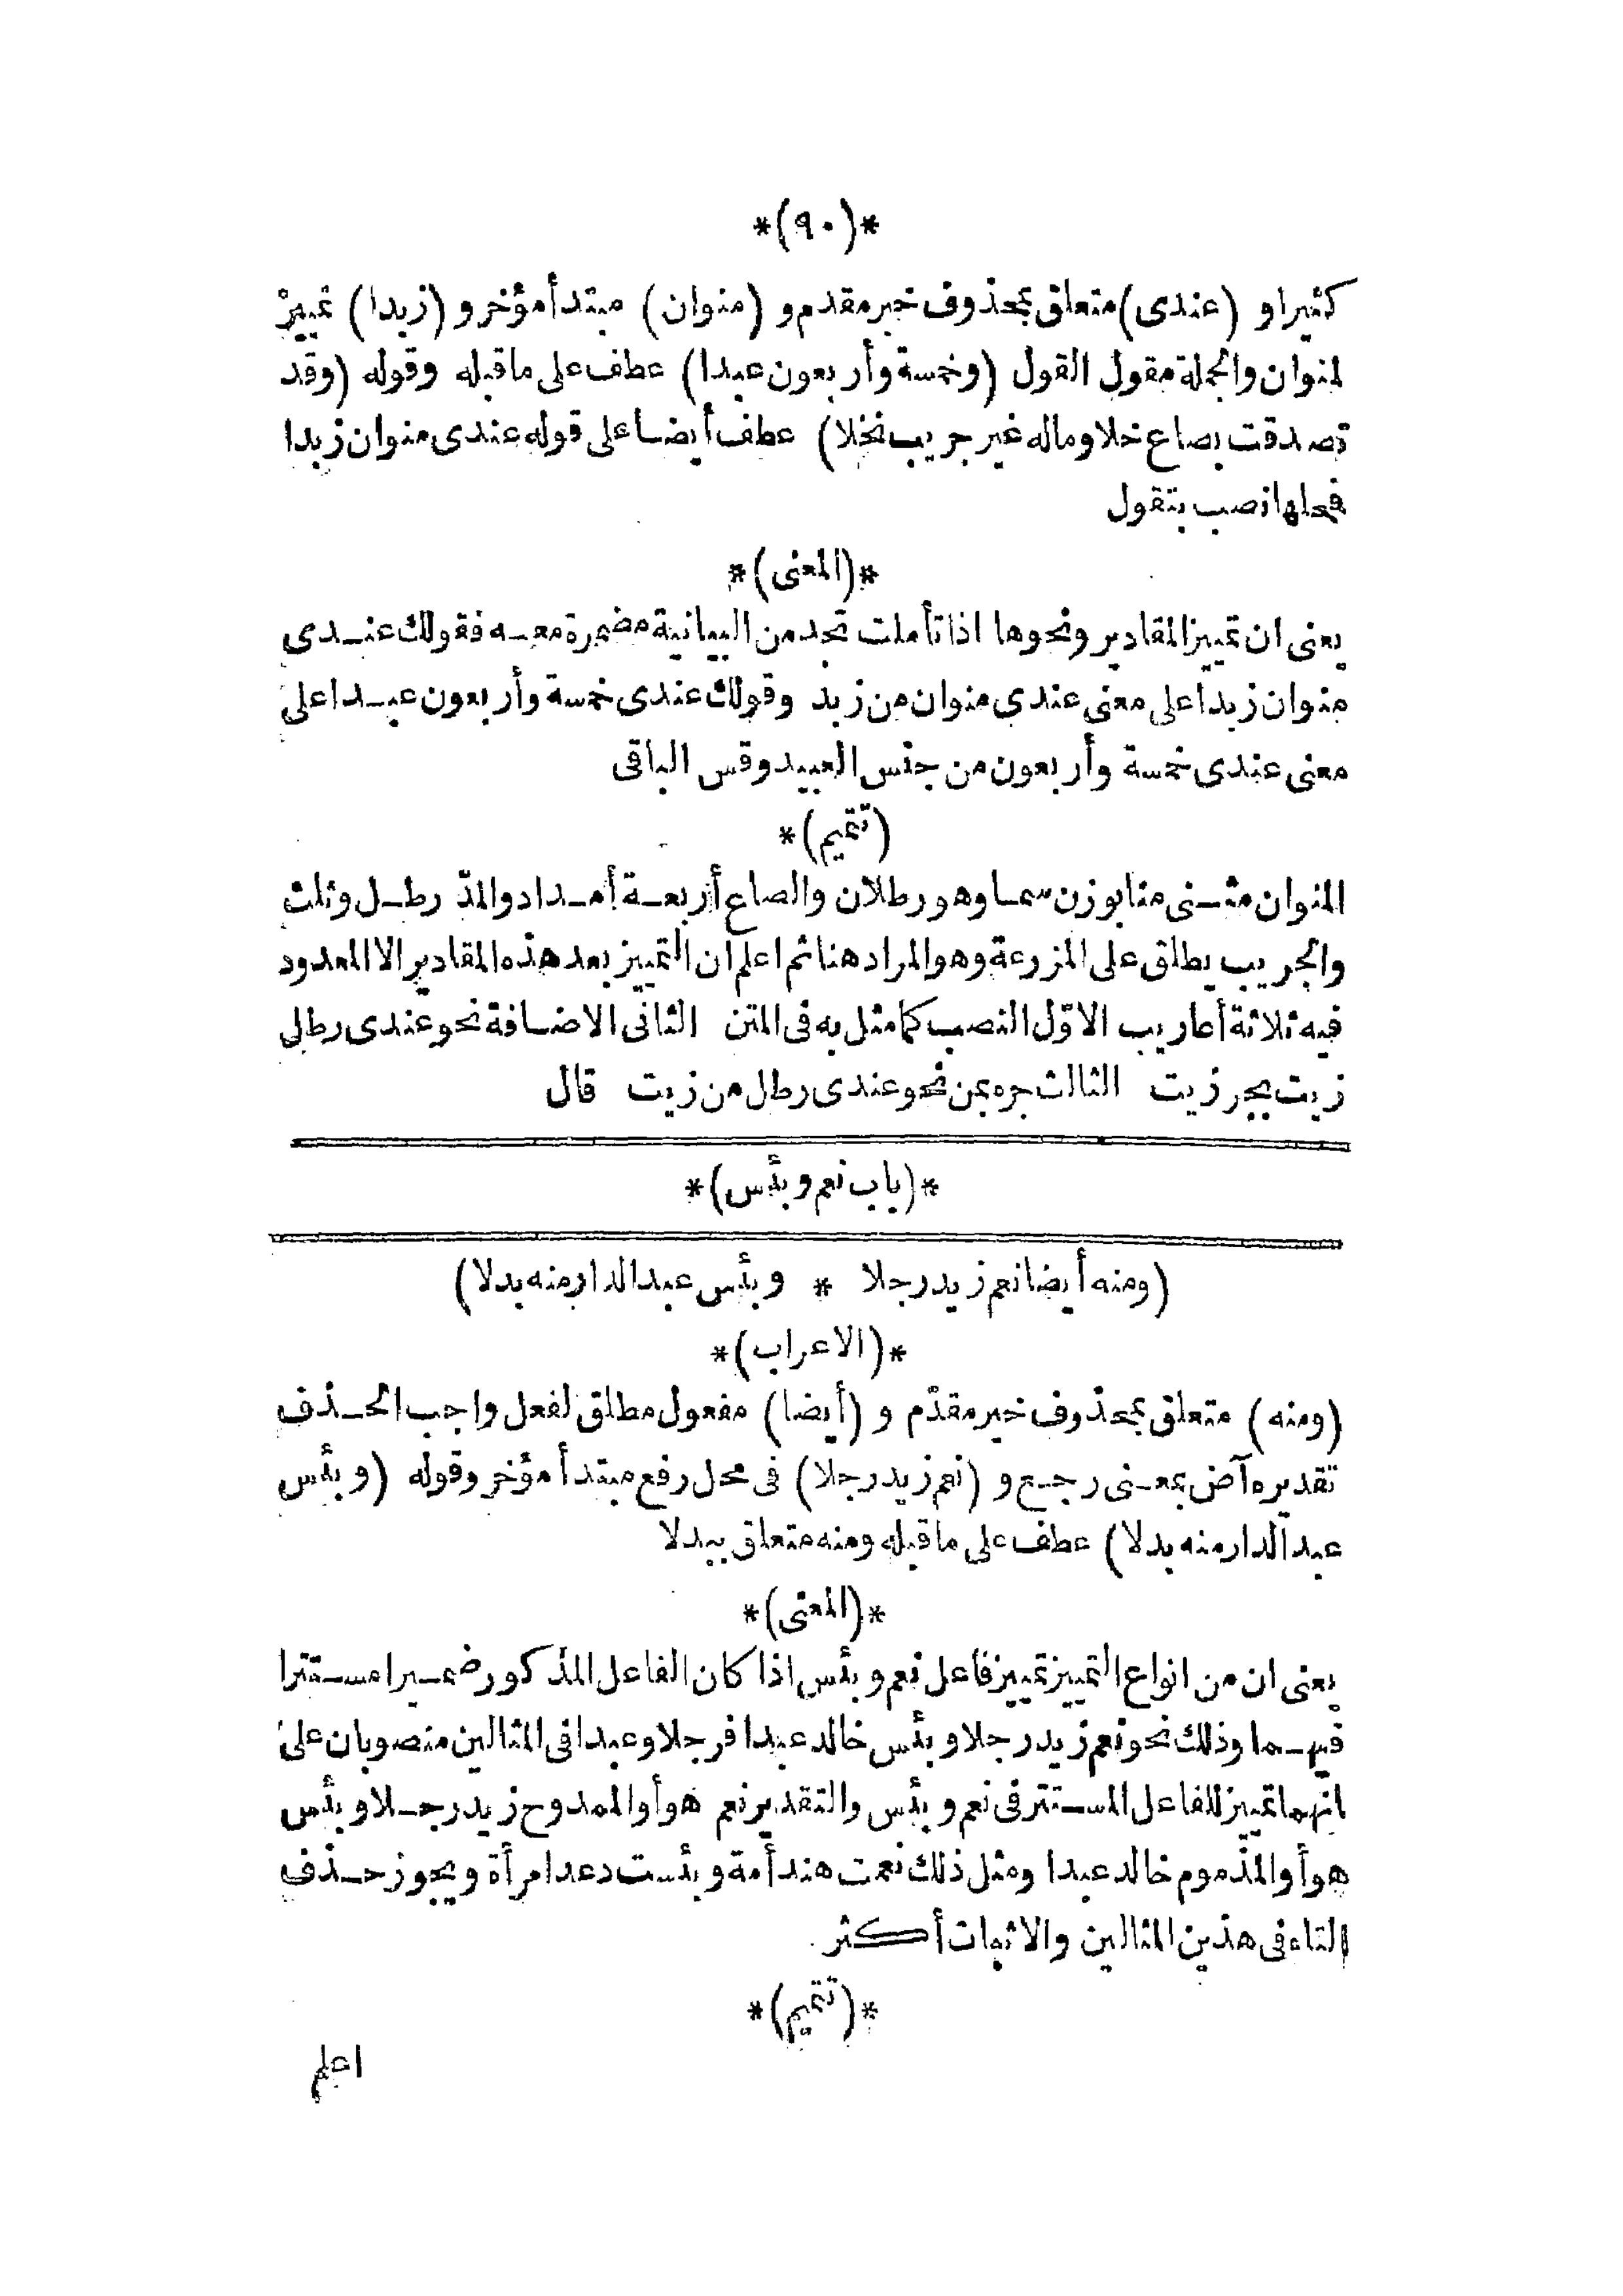 *(٩٠)*
كثيرا و (عندى) متعلق بمحذوف خبر مقدم و (منوان) مبتدأ مؤخر و (زبدا) تمييز
لمنوان والجملة مقول القول (وخمسة وأربعون عبدا) عطف على ماقبله وقوله (وقد
تصدقت بصاع خلا وماله غير جريب نخلا) عطف أيضا على قوله عندى منوان زبدا
فمحلها نصب بتقول
*(المعنى)*
يعنى ان تمييز المقادير ونحوها اذا تأملت تجد من البيانية مضمرة معه فقولك عندى
منوان زبدا على معنى عندى منوان من زبد وقولك عندى خمسة وأربعون عبدا على
معنى عندى خمسة وأربعون من جنس العبيد وقس الباقى
(تتميم)*
المنوان مثنى منا بوزن سما وهو رطلان والصاع أربعة أمداد والمدّ رطل وثلث
والجريب يطلق على المزرعة وهو المراد هنا ثم اعلم ان التمييز بعد هذه المقادير الا المعدود
فيه ثلاثة أعاريب الاوّل النصب كما مثل به فى المتن الثانى الاضافة نحو عندى رطلى
زيت بجر زيت الثالث جره بمن نحو عندى رطال من زيت قال
*(باب نعم وبئس)*
(ومنه أيضا نعم زيد رجلا * وبئس عبد الدار منه بدلا)
*(الاعراب)*
(ومنه) متعلق بمحذوف خبر مقدّم و (أيضا) مفعول مطلق لفعل واجب الحذف
تقديره آض بمعنى رجع و (نعم زيد رجلا) فى محل رفع مبتدأ مؤخر وقوله (وبئس
عبد الدار منه بدلا) عطف على ماقبله ومنه متعلق ببدلا
*(المعنى)*
يعنى ان من انواع التمييز تمييز فاعل نعم وبئس اذا كان الفاعل المذكور ضميرا مستترا
فيهما وذلك نحو نعم زيد رجلا وبئس خالد عبدا فرجلا وعبدا فى المثالين منصوبان على
انهما تمييز للفاعل المستتر فى نعم وبئس والتقدير نعم هو أو الممدوح زيد رجلا وبئس
هو أو المذموم خالد عبدا ومثل ذلك نعمت هند أمة وبئست دعد امرأة ويجوز حذف
التاء فى هذين المثالين والاثبات أكثر
*(تتميم)*
اعلم